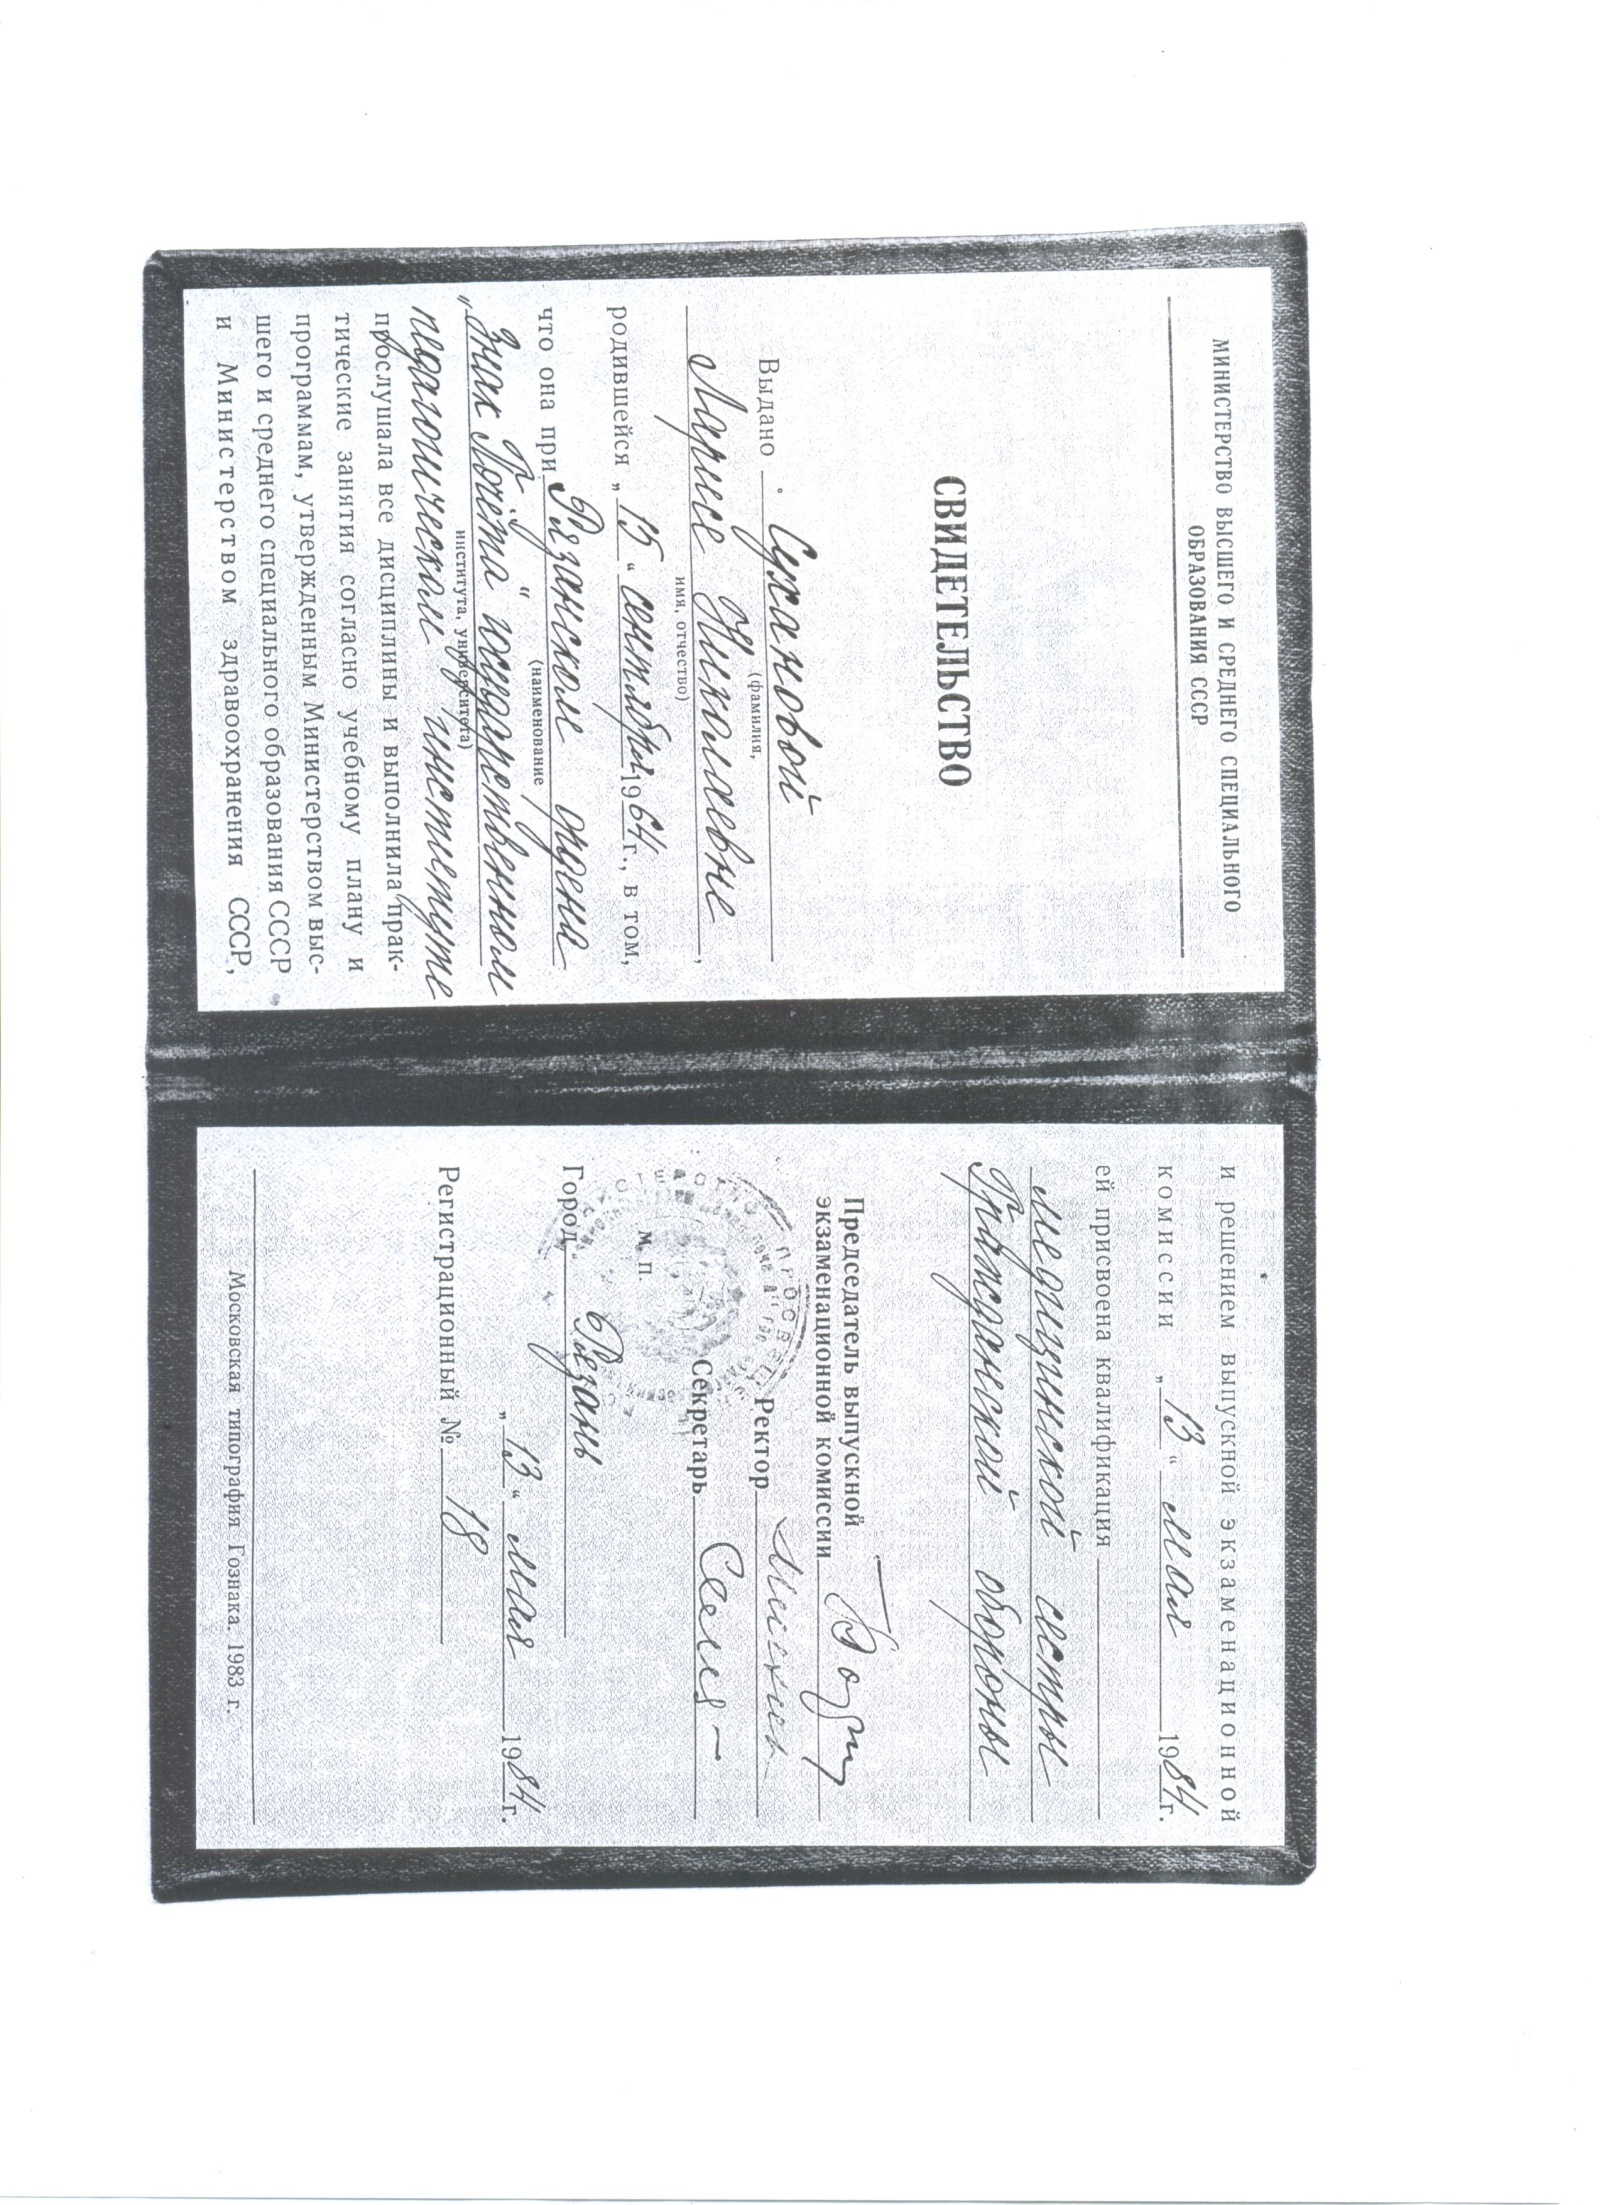 МИНИСТЕРСТВО ВЫСШЕГО И СРЕДНЕГО СПЕЦИАЛЬНОГО
ОБРАЗОВАНИЯ СССР
СВИДЕТЕЛЬСТВО
Выдано Сухановой
(фамилия,
Ларисе Николаевне,
имя, отчество)
родившейся „15“ сентября 1964 г., в том,
что она при Рязанском ордена
(наименование
„Знак Почёта“ государственном
института, университета)
педагогическом институте
прослушала все дисциплины и выполнила прак-
тические занятия согласно учебному плану и
программам, утвержденным Министерством выс-
шего и среднего специального образования СССР
и Министерством здравоохранения СССР,
и решением выпускной экзаменационной
комиссии „13“ мая 1984 г.
ей присвоена квалификация
медицинской сестры
Гражданской обороны
Председатель выпускной
экзаменационной комиссии
Ректор
Секретарь
М. П.
Город Рязань
„13“ мая 1984 г.
Регистрационный № 18
Московская типография Гознака. 1983 г.